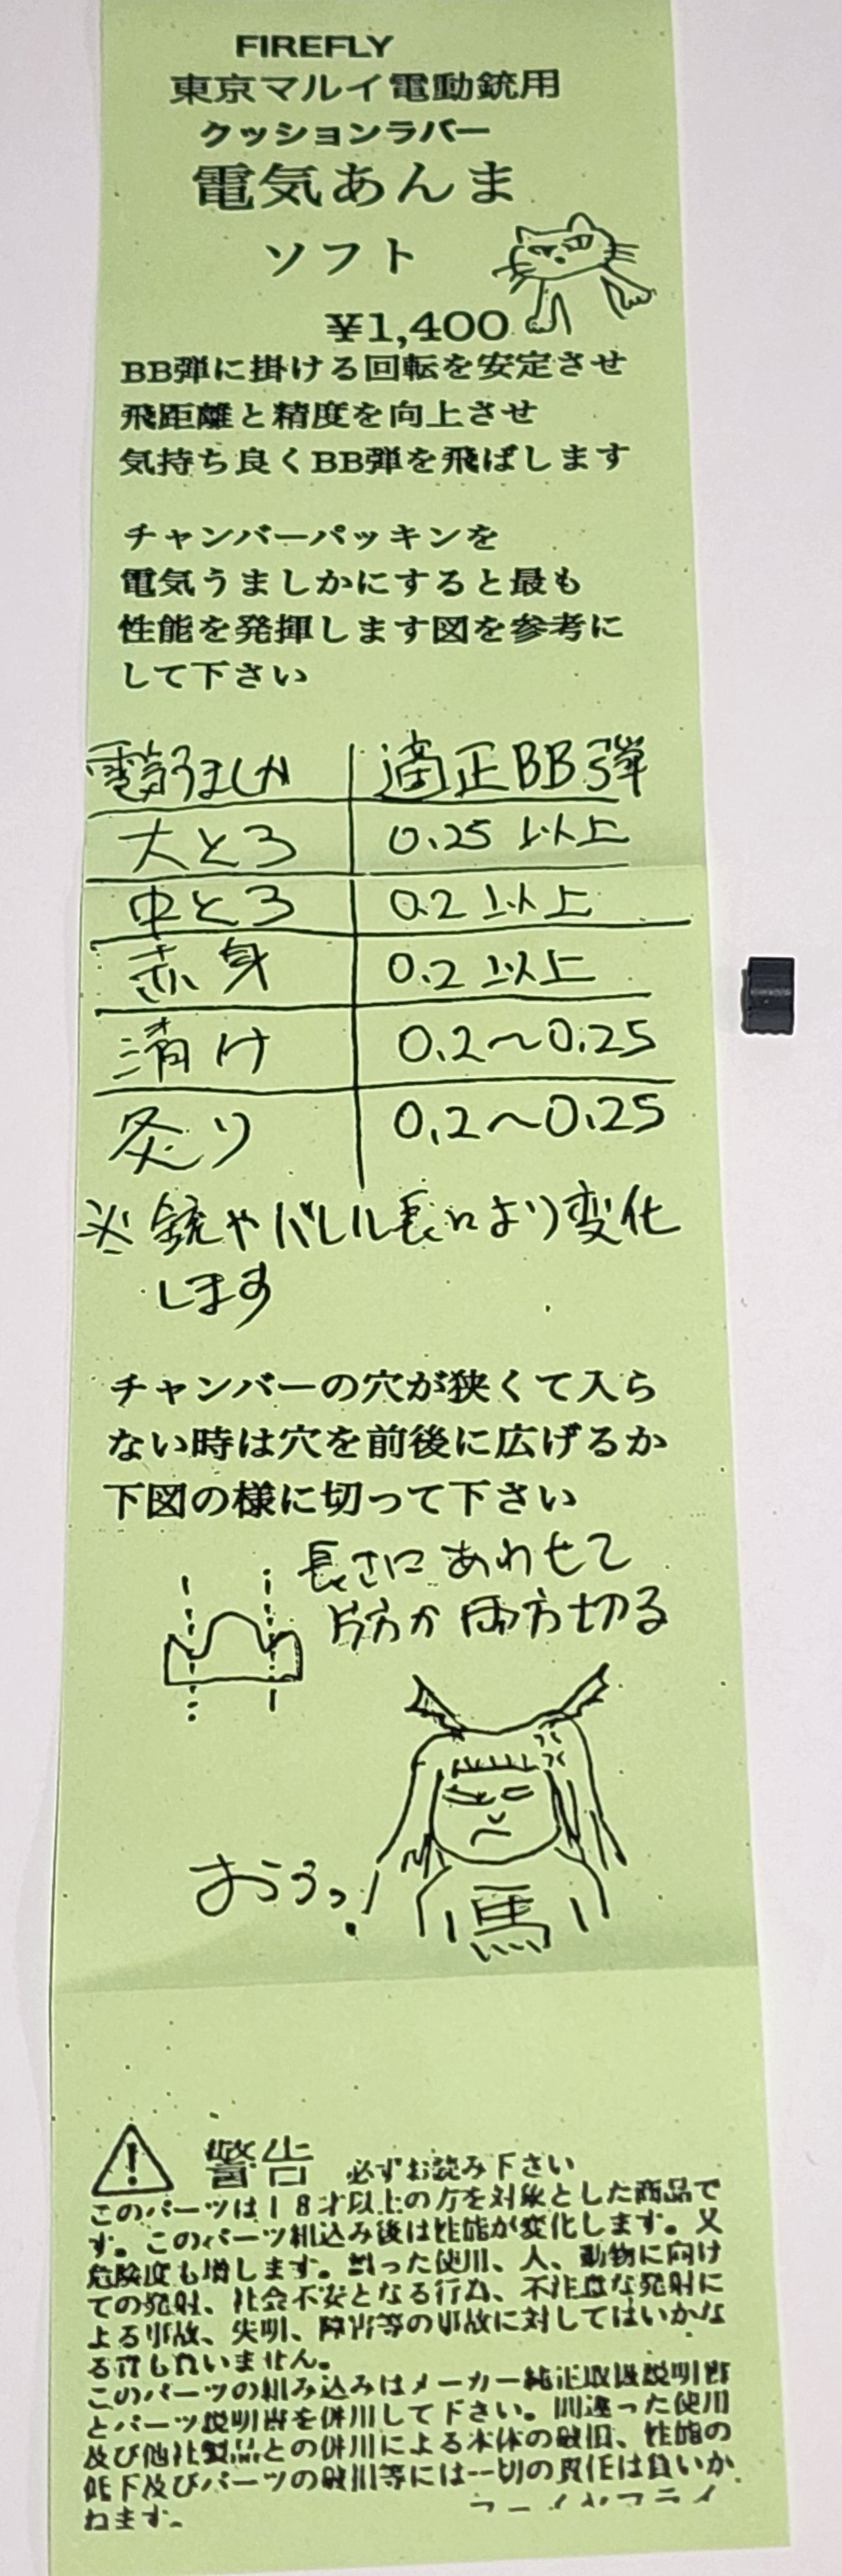 FIREFLY
東京マルイ電動銃用
クッションラバー
電気あんま
ソフト
¥1,400
BB弾に掛ける回転を安定させ
飛距離と精度を向上させ
気持ち良くBB弾を飛ばします
チャンバーパッキンを
電気うましかにすると最も
性能を発揮します図を参考に
して下さい
電気うましか 適正BB弾
大とろ 0.25以上
中とろ 0.2以上
赤身 0.2以上
漬け 0.2〜0.25
炙り 0.2〜0.25
※銃やバレル長により変化
します
チャンバーの穴が狭くて入ら
ない時は穴を前後に広げるか
下図の様に切って下さい
長さにあわせて
片方か両方切る
おうっ!
馬
警告 必ずお読み下さい
このパーツは18才以上の方を対象とした商品で
す。このパーツ組込み後は性能が変化します。又
危険度も増します。誤った使用、人、動物に向け
ての発射、社会不安となる行為、不注意な発射に
よる事故、失明、障害等の事故に対してはいかな
る責も負いません。
このパーツの組み込みはメーカー純正取扱説明書
とパーツ説明書を併用して下さい。間違った使用
及び他社製品との併用による本体の破損、性能の
低下及びパーツの破損等には一切の責任は負いか
ねます。